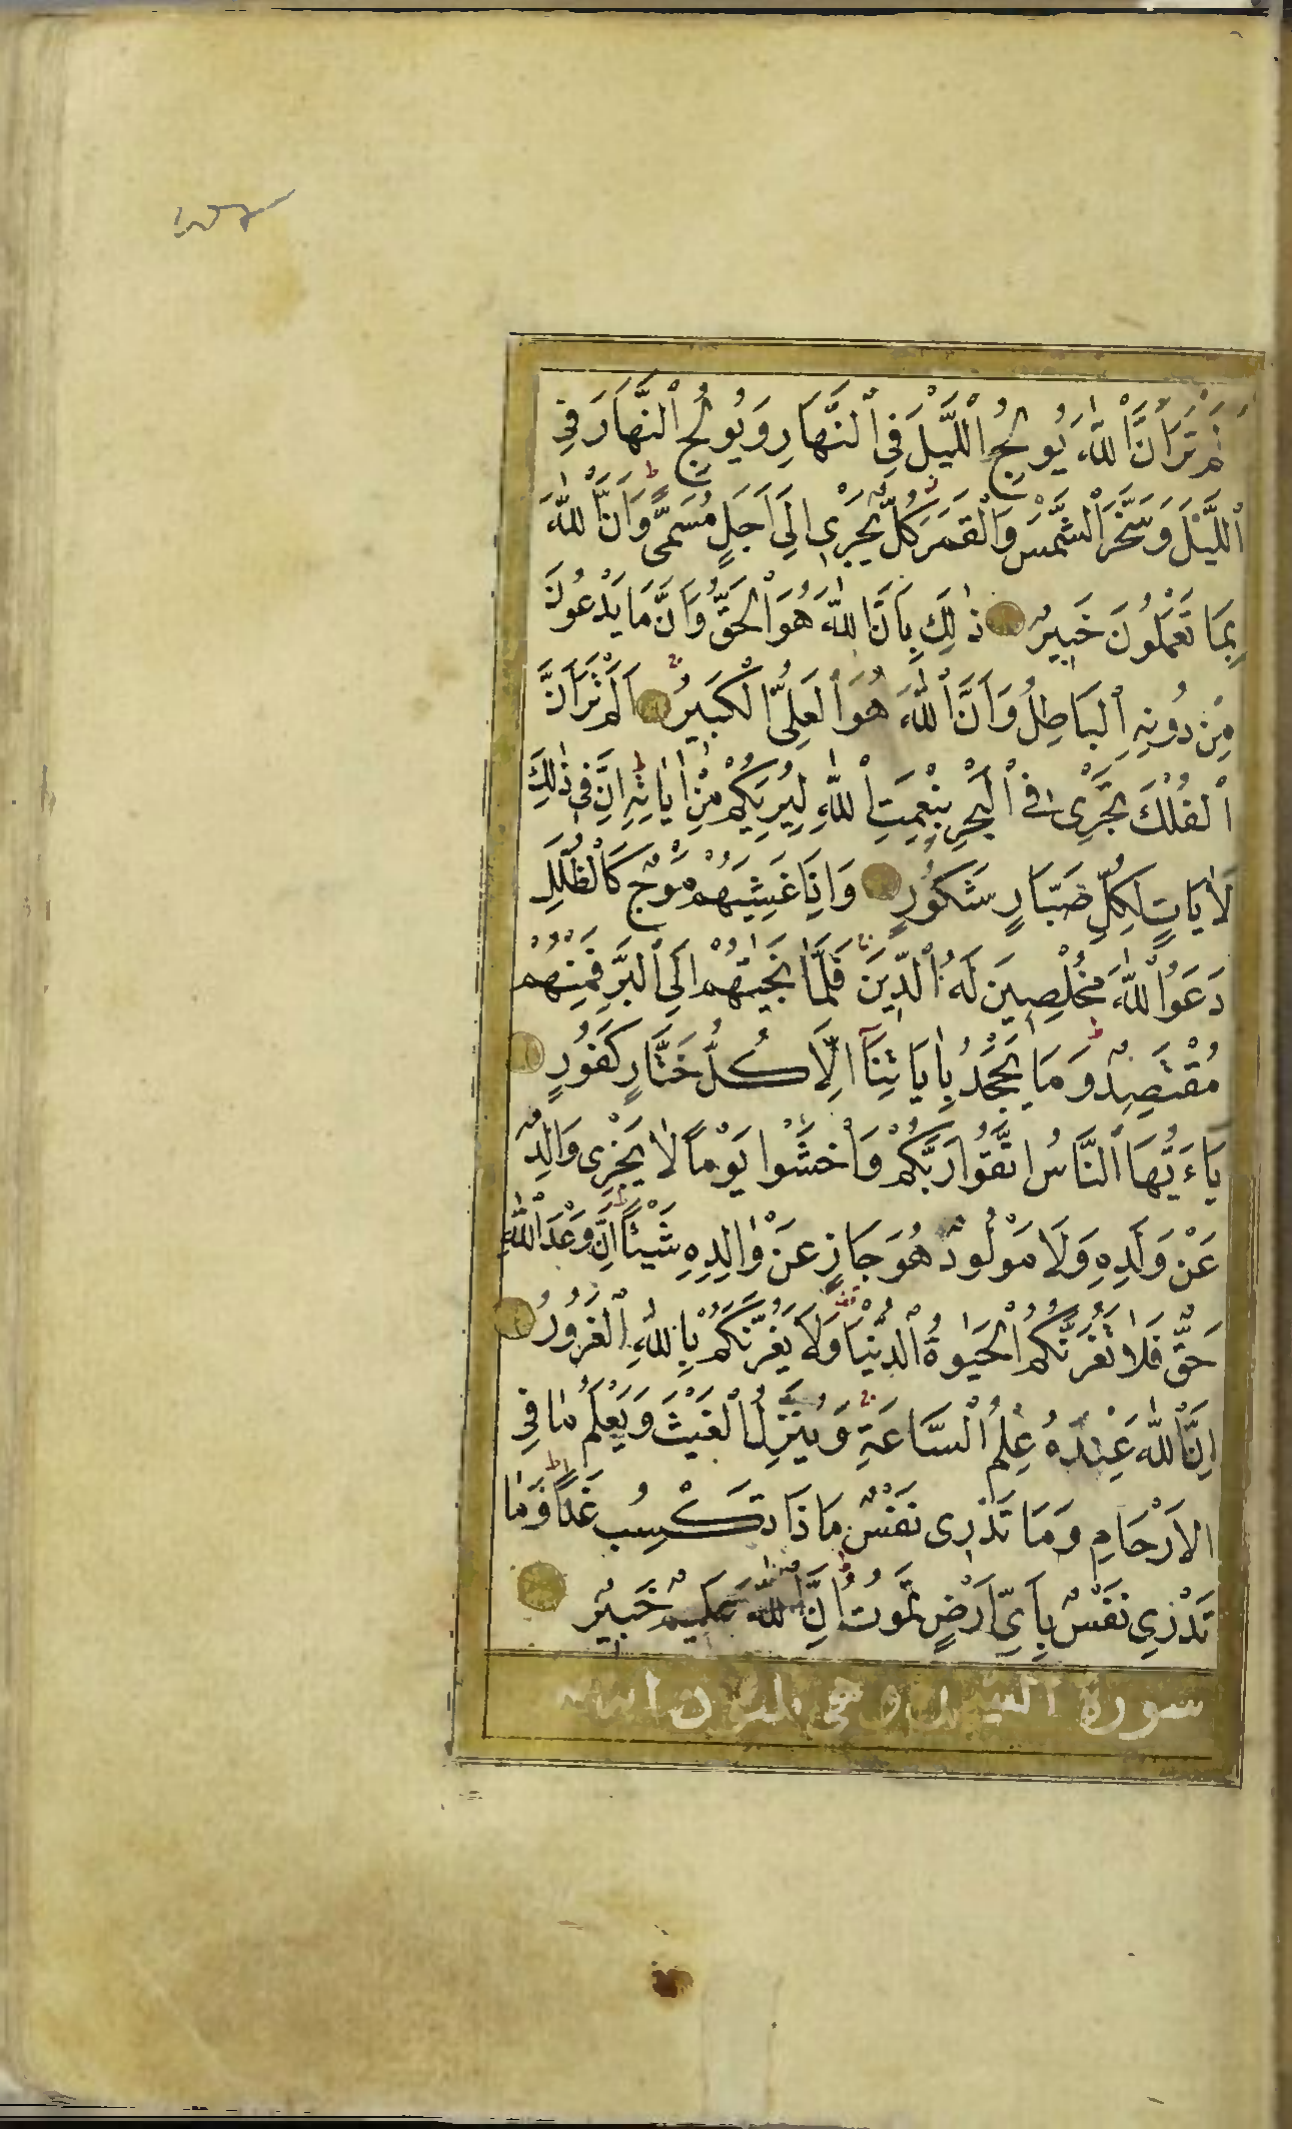 لَمْ تَرَ اَنَّ اللّٰهَ يُولِجُ الَّيْلَ فِي النَّهَارِ وَيُولِجُ النَّهَارَ فِي
اللَّيْلَ وَسَخَّرَ الشَّمْسَ وَالْقَمَرَ كُلٌّ يَجْرِي اِلَى اَجَلٍ مُسَمًّى وَاَنَّ اللّٰهَ
بِمَا تَعْمَلُونَ خَبِيرٌ ذٰلِكَ بِاَنَّ اللّٰهَ هُوَ الْحَقُّ وَاَنَّ مَا يَدْعُونَ
مِنْ دُونِهِ الْبَاطِلُ وَاَنَّ اللّٰهَ هُوَ الْعَلِيُّ الْكَبِيرُ اَلَمْ تَرَ اَنَّ
الْفُلْكَ تَجْرِي فِي الْبَحْرِ بِنِعْمَتِ اللّٰهِ لِيُرِيَكُمْ مِنْ اٰيَاتِهِ اِنَّ فِي ذٰلِكَ
لَاٰيَاتٍ لِكُلِّ صَبَّارٍ شَكُورٍ وَاِذَا غَشِيَهُمْ مَوْجٌ كَالظُّلَلِ
دَعَوُا اللّٰهَ مُخْلِصِينَ لَهُ الدِّينَ فَلَمَّا نَجّٰيهُمْ اِلَى الْبَرِّ فَمِنْهُمْ
مُقْتَصِدٌ وَمَا يَجْحَدُ بِاٰيَاتِنَا اِلَّا كُلُّ خَتَّارٍ كَفُورٍ
يَاءَيُّهَا النَّاسُ اتَّقُوا رَبَّكُمْ وَاخْشَوْا يَوْمًا لَا يَجْزِي وَالِدٌ
عَنْ وَلَدِهِ وَلَا مَوْلُودٌ هُوَ جَازٍ عَنْ وَالِدِهِ شَيْئًا اِنَّ وَعْدَ اللّٰهِ
حَقٌّ فَلَا تَغُرَّنَّكُمُ الْحَيٰوةُ الدُّنْيَا وَلَا يَغُرَّنَّكُمْ بِاللّٰهِ الْغَرُورُ
اِنَّ اللّٰهَ عِنْدَهُ عِلْمُ السَّاعَةِ وَيُنَزِّلُ الْغَيْثَ وَيَعْلَمُ مَا فِي
الْاَرْحَامِ وَمَا تَدْرِي نَفْسٌ مَاذَا تَكْسِبُ غَدًا وَمَا
تَدْرِي نَفْسٌ بِاَيِّ اَرْضٍ تَمُوتُ اِنَّ اللّٰهَ عَلِيمٌ خَبِيرٌ
سورة السجدة وهى ثلثون اية